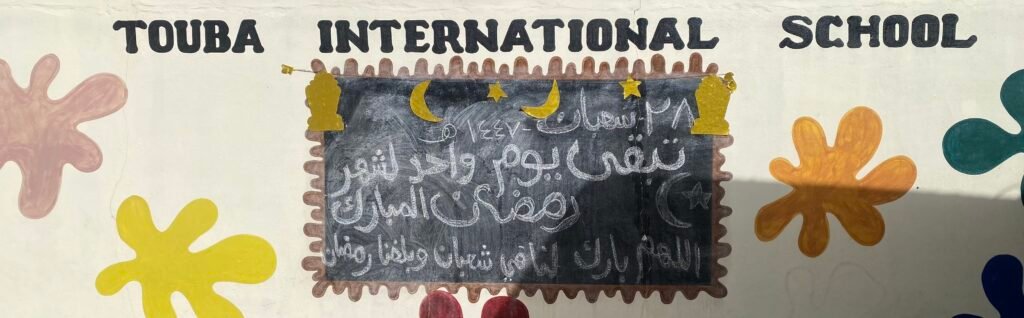 TOUBA INTERNATIONAL SCHOOL
٢٨ - شعبان - ١٤٤٧ هـ
تبقى يوم واحد لشهر
رمضان المبارك
اللهم بارك لنا في شعبان وبلغنا رمضان